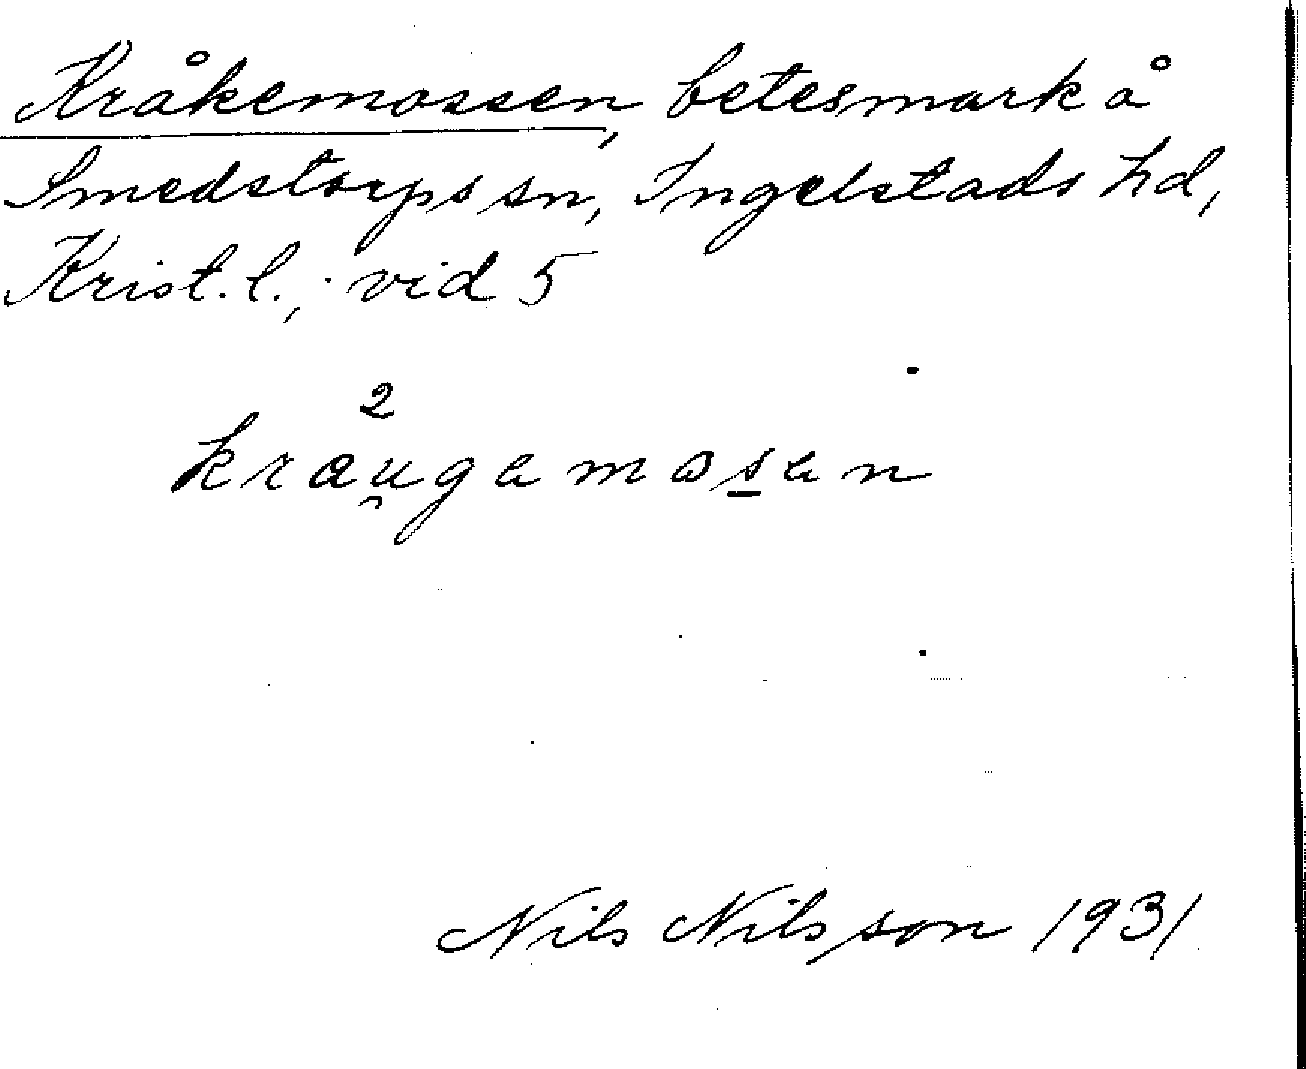 Kråkemossen, betesmark å
Smedstorps sn, Ingelstads hd,
Krist. l., vid 5
2
krau̯gamos̠an
Nils Nilsson 1931